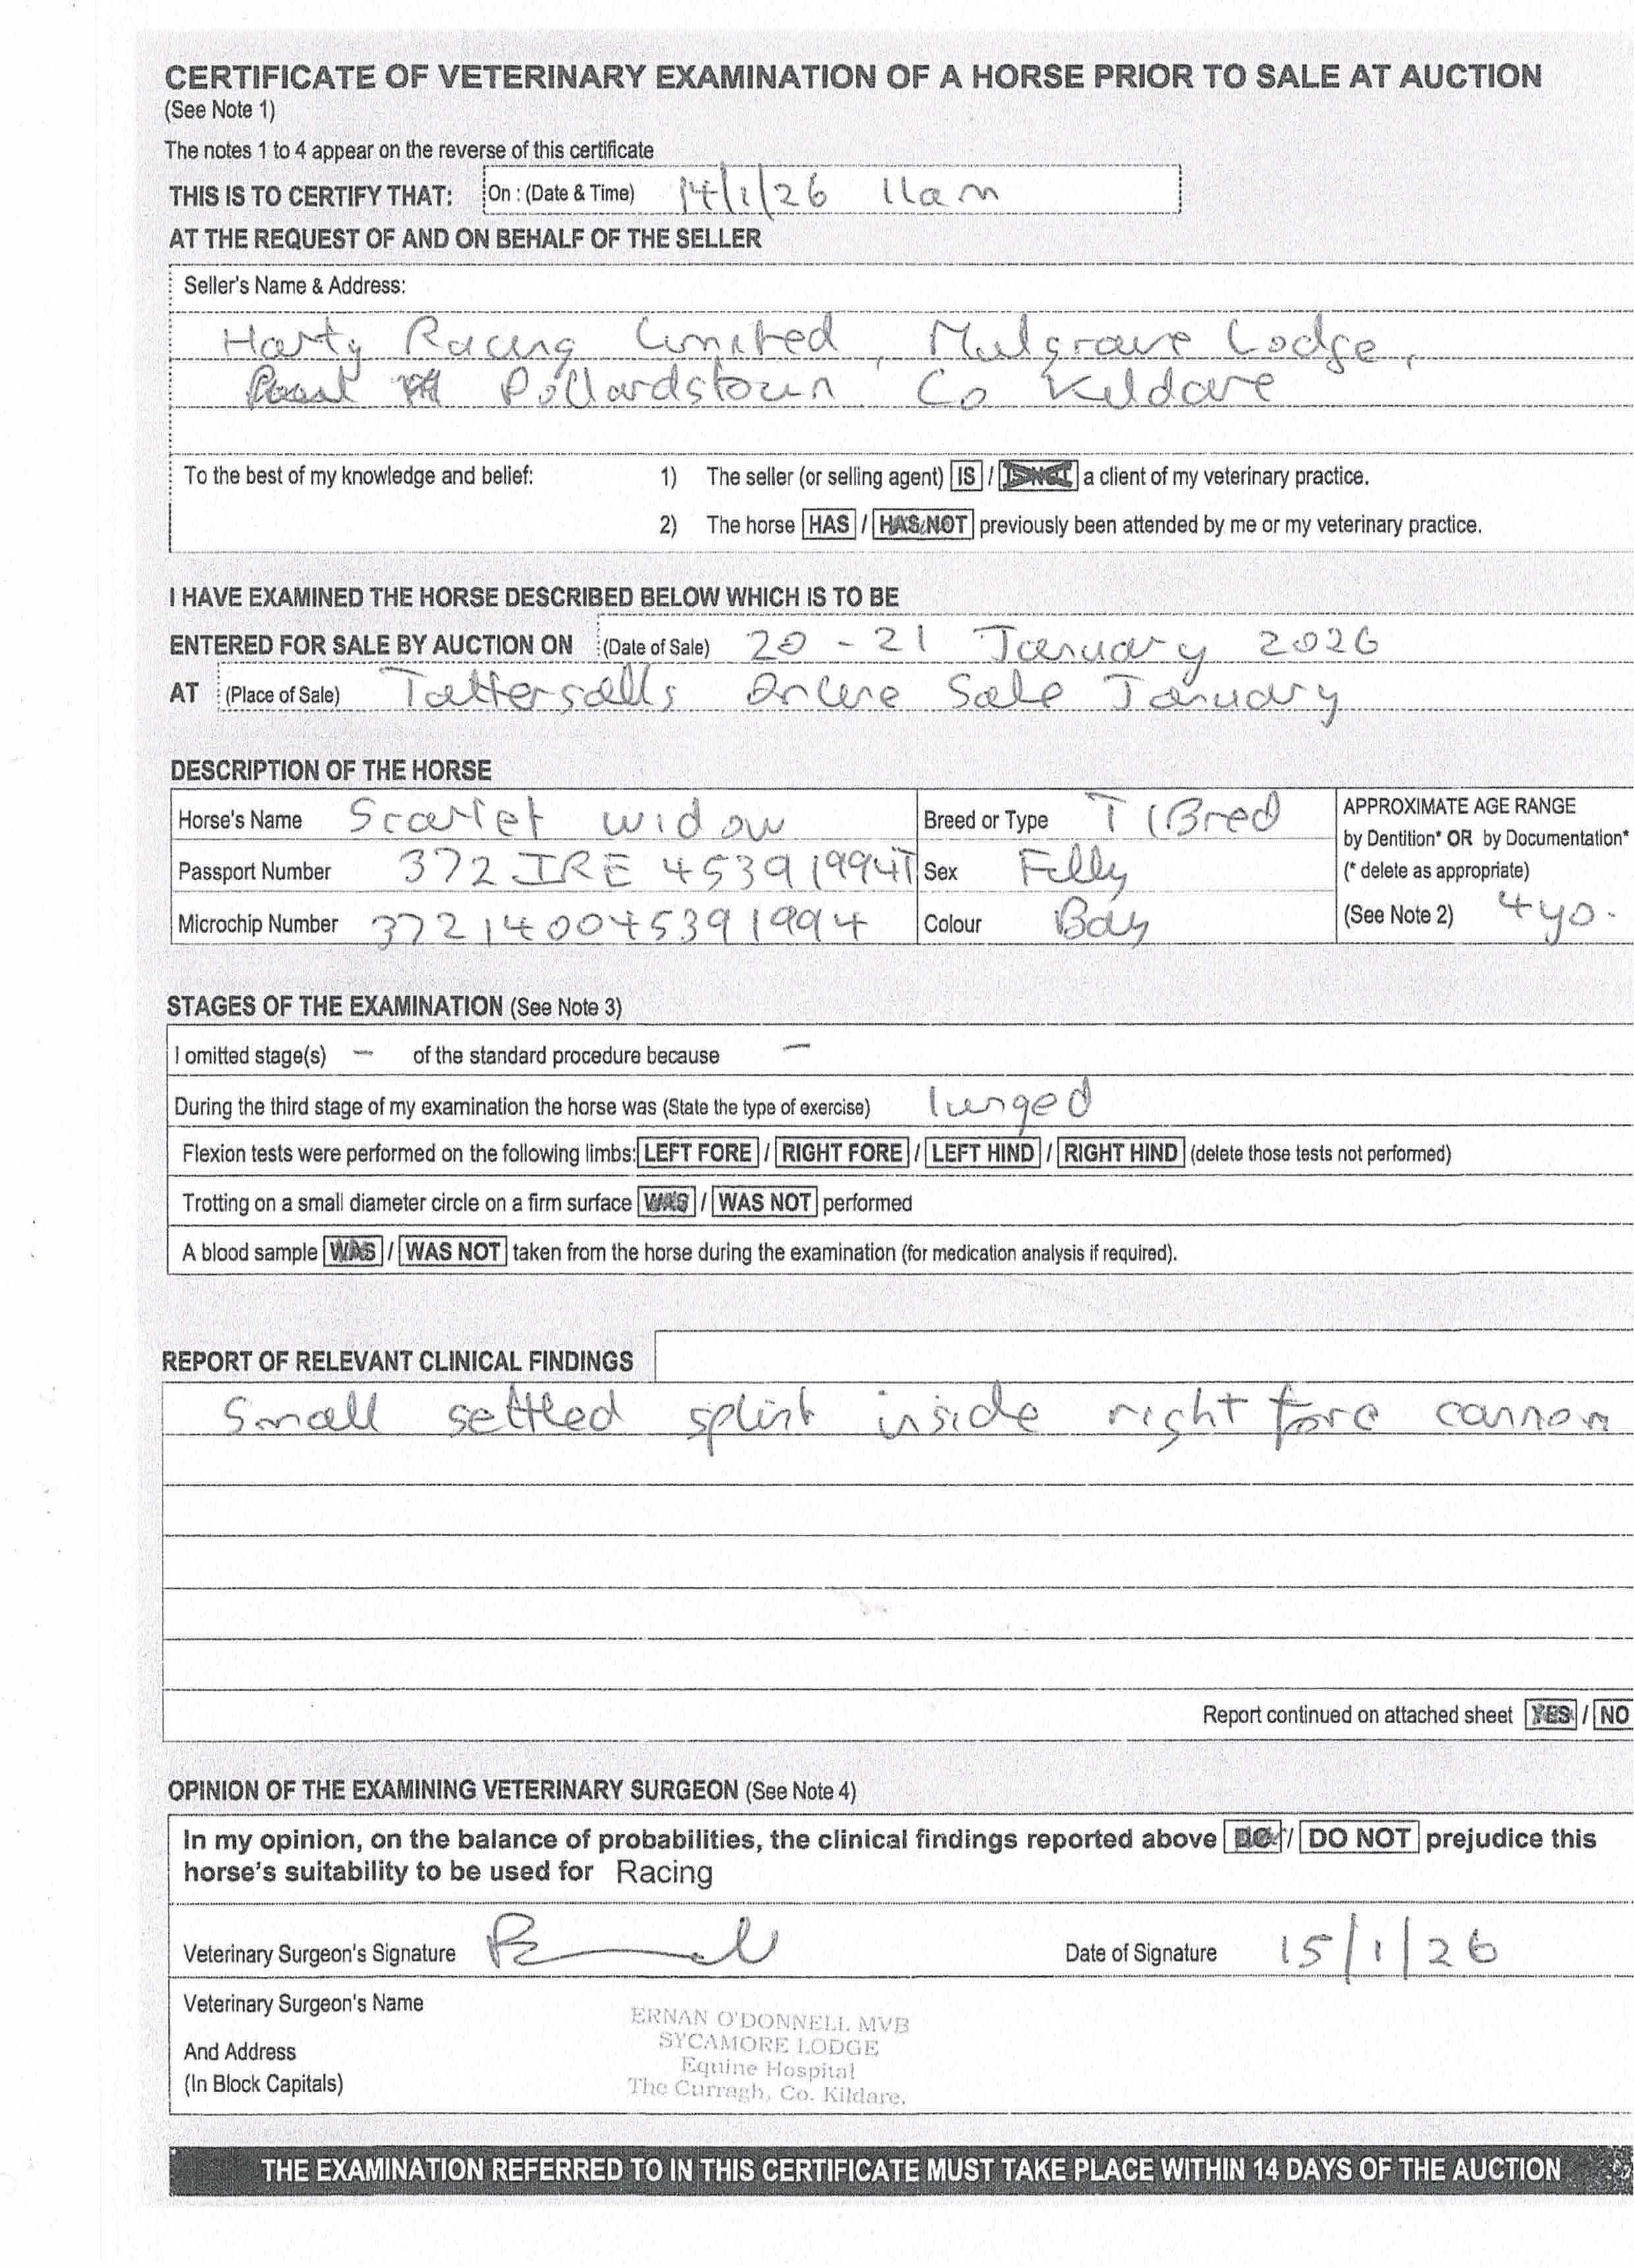 CERTIFICATE OF VETERINARY EXAMINATION OF A HORSE PRIOR TO SALE AT AUCTION
(See Note 1)
The notes 1 to 4 appear on the reverse of this certificate
THIS IS TO CERTIFY THAT: On : (Date & Time) 14/1/26 11am
AT THE REQUEST OF AND ON BEHALF OF THE SELLER
Seller's Name & Address:
Harty Racing Limited, Mulgrave Lodge,
Pollardstown Co Kildare
To the best of my knowledge and belief: 1) The seller (or selling agent) IS / IS NOT a client of my veterinary practice.
2) The horse HAS / HAS NOT previously been attended by me or my veterinary practice.
I HAVE EXAMINED THE HORSE DESCRIBED BELOW WHICH IS TO BE
ENTERED FOR SALE BY AUCTION ON (Date of Sale) 20 - 21 January 2026
AT (Place of Sale) Tattersalls Online Sale January
DESCRIPTION OF THE HORSE
Horse's Name Scarlet widow Breed or Type T/Bred APPROXIMATE AGE RANGE
by Dentition* OR by Documentation*
Passport Number 372 IRE 45391994T Sex Filly (* delete as appropriate)
Microchip Number 372140045391994 Colour Bay (See Note 2) 4yo.
STAGES OF THE EXAMINATION (See Note 3)
I omitted stage(s) – of the standard procedure because –
During the third stage of my examination the horse was (State the type of exercise) lunged
Flexion tests were performed on the following limbs: LEFT FORE / RIGHT FORE / LEFT HIND / RIGHT HIND (delete those tests not performed)
Trotting on a small diameter circle on a firm surface WAS / WAS NOT performed
A blood sample WAS / WAS NOT taken from the horse during the examination (for medication analysis if required).
REPORT OF RELEVANT CLINICAL FINDINGS
Small settled splint inside right fore cannon
Report continued on attached sheet YES / NO
OPINION OF THE EXAMINING VETERINARY SURGEON (See Note 4)
In my opinion, on the balance of probabilities, the clinical findings reported above DO / DO NOT prejudice this
horse's suitability to be used for Racing
Veterinary Surgeon's Signature Date of Signature 15/1/26
Veterinary Surgeon's Name
And Address
(In Block Capitals)
ERNAN O'DONNELL MVB
SYCAMORE LODGE
Equine Hospital
The Curragh, Co. Kildare.
THE EXAMINATION REFERRED TO IN THIS CERTIFICATE MUST TAKE PLACE WITHIN 14 DAYS OF THE AUCTION